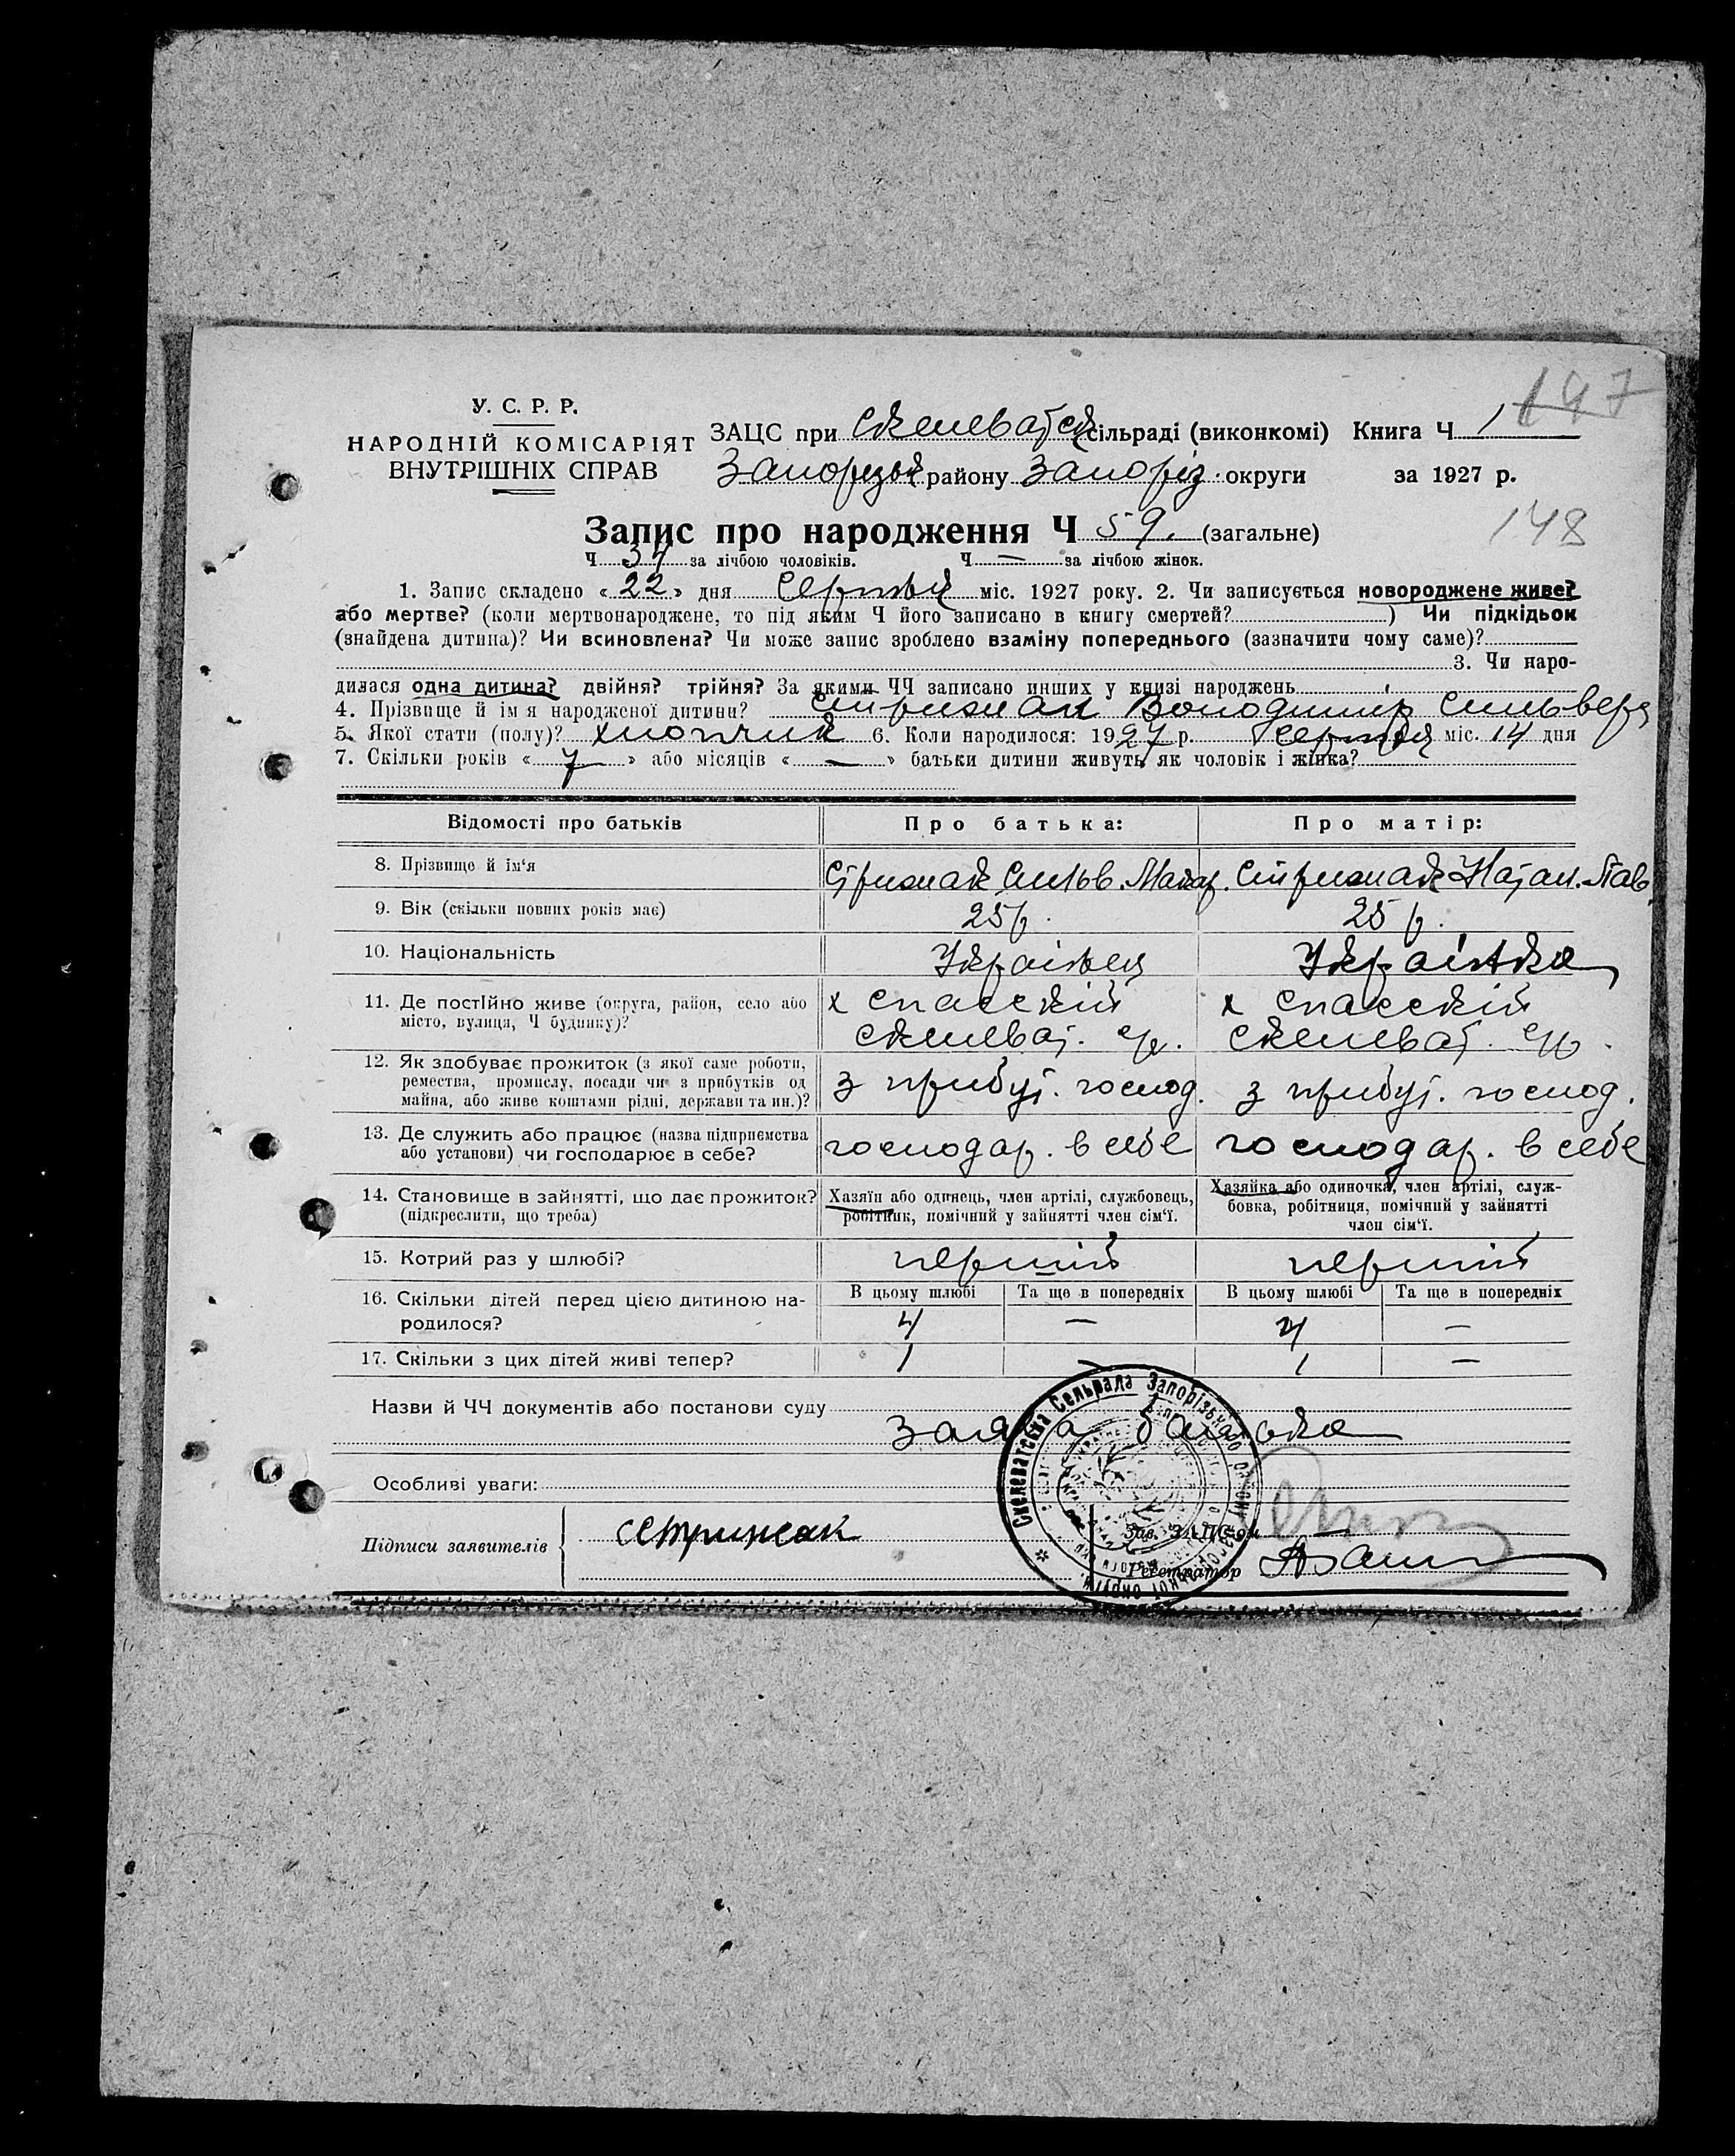 147
У. С. Р. Р.
НАРОДНІЙ КОМІСАРІЯТ
ВНУТРІШНІХ СПРАВ
ЗАЦС при Скелеватск сільраді (виконкомі) Книга Ч 1
Запорізьк району Запоріз. округи за 1927 р.
148
Запис про народження Ч 59. (загальне)
Ч 34 за лічбою чоловіків. Ч — за лічбою жінок.
1. Запис складено «22» дня Серпня міс. 1927 року. 2. Чи записується новороджене живе?
або мертве? (коли мертвонароджене, то під яким Ч його записано в книгу смертей?) Чи підкідьок
(знайдена дитина)? Чи всиновлена? Чи може запис зроблено взаміну попереднього (зазначити чому саме)?
3. Чи наро-
дилася одна дитина? двійня? трійня? За якими ЧЧ записано инших у книзі народжень
4. Прізвище й ім'я народженої дитини? Стрижак Володимир Сильвер
5. Якої стати (полу)? хлопчик 6. Коли народилося: 1927 р. Серпня міс. 14 дня
7. Скільки років «7» або місяців «—» батьки дитини живуть як чоловік і жінка?
Відомості про батьків Про батька: Про матір:
8. Прізвище й ім'я Стрижак Сильв. Макар. Стрижак Натал. Пав.
9. Вік (скільки повних років має) 25 р. 25 р.
10. Національність Українец Українка
11. Де постійно живе (округа, район, село або х Спасскій х Спасскій
місто, вулиця, Ч будинку)? Скелеват. Скелеват.
12. Як здобуває прожиток (з якої саме роботи,
ремества, промислу, посади чи з прибутків од з прибут. господ. з прибут. господ.
майна, або живе коштами рідні, держави та ин.)?
13. Де служить або працює (назва підприємства господар. в себе господар. в себе
або установи) чи господарює в себе?
14. Становище в зайнятті, що дає прожиток? Хазяїн або одинець, член артілі, службовець, Хазяйка або одиночка, член артілі, служ-
(підкреслити, що треба) робітник, помічний у зайнятті член сім'ї. бовка, робітниця, помічний у зайнятті
член сім'ї.
15. Котрий раз у шлюбі? перший перший
16. Скільки дітей перед цією дитиною на- В цьому шлюбі Та ще в попередніх В цьому шлюбі Та ще в попередніх
родилося? 4 — 4 —
17. Скільки з цих дітей живі тепер? 1 — 1 —
Назви й ЧЧ документів або постанови суду
заява батька
Особливі уваги:
Скелеватська Сельрада Запорізького району Запорізької округи
Підписи заявителів стрижак Зав. ЗАЦС'ом
Реєстратор